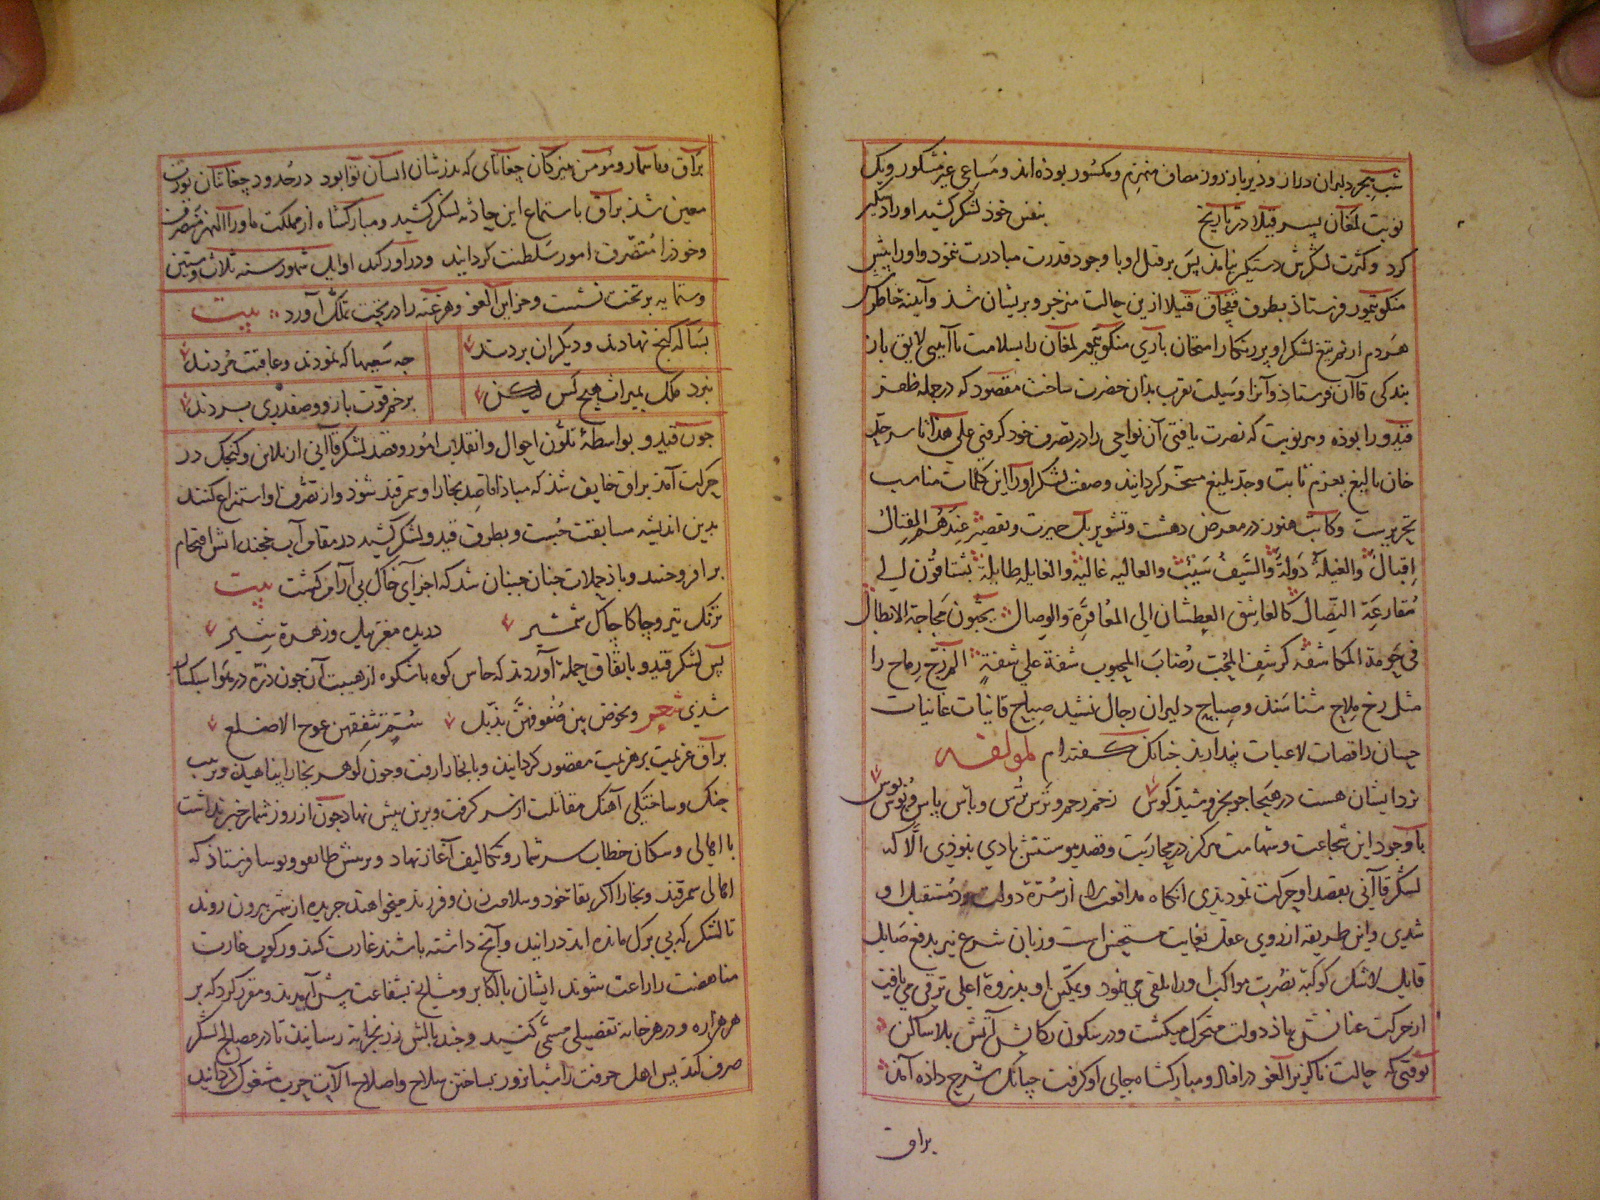 شب هجر دلبران دراز و دیرباز روز مصاف منهزم و مکسور بوده اند و مساعی غیر مشکور و یک
نوبت لمغان پسر قبلا در تاریخ بنفس خود لشکر کشید او را دستگیر
کرد و کثرت لشکرش دستگیر نیامد پس بر قتل او با وجود قدرت مبادرت ننمود و او را پیش
منکو تیمور فرستاد بطرف قفجاق قبلا ازین حالت منزجر و پریشان شد و آینه خاطرش
هر دم از نم تیغ لشکر او پر زنگار امتحان باری منکو تیمور لمغان را بسلامت با آیینی لایق باز
بندکی قاآن فرستاد و آنرا وسیلت تقرب بدان حضرت ساخت مقصود که در جمله ظفر
قیدو را بوده و هر نوبت که نصرت یافتی آن نواحی را در تصرف خود کرفتی علی هذا تا سرحد
خان بالیغ بعزم ثابت وجد بلیغ مسخر کردانید وصفت لشکر او را این کلمات مناسب
تحریرست و کاتب هنوز در معرض دهشت و تشویر یک حیرت و تقصیر عندهم القتال
اقبال والغیلة دولة والسیف سیب والعالیه غالیة والغایله طایلة یتسابقون الی
مقارعة النصال کالعاشق العطشان الی المعاقرة والوصال یحبون مجاجة الابطال
فی حومة المکاشفه کرشف المحب رضاب المحبوب شفة علی شفة المریخ رماح را
مثل رخ ملاح شناسند و صیاح دلیران رجال نشید صباح قانیات غانیات
حسان راقصات لاعبات پندارند چنانک کفته ام لمولفه
نزد ایشان هست در هیجا چو بخروشید کوس زخم رحم و ترس ترس و باس پاس و بوس بوس
با وجود این شجاعت و شهامت هرکز در محاربت و قصد موستنش بادی نبودی الا که
لشکر قاآنی بقصد او حرکت نمودندی آنکاه مدافعت را از سرّة دولت مستقبل او
شدی و این طریقه از روی عقل بغایت مستحسنست و زبان شرع نیز بدفع صایل
قایل لاشک کوکبه نصرت مواکب او را تلقی می نمود و تمکین او بذروة اعلی ترقی می یافت
از حرکت عنانش باد دولت متحرک میکشت و در سکون رکابش آتش بلا ساکن
تو وقتی که حالت ناکزیر الغو در افتاد و مبارکشاه جای او کرفت چنانک شرح داده آمد
براق
براق و باسمار و مومن میرکان چغاتای که پدرشان ایسان توا بود در حدود چغانیان یورت
معین شد براق باستماع این حادثه لشکر کشید و مبارکشاه از مملکت ماوراالنهر منصرف
و خود را متصرف امور سلطنت کردانید و در آورکند اوایل شهور سنه ثلاث و ستین
و ستمایه بر تخت نشست و خزاین الغو و هرغنه را در تحت تملک آورد بیت
بسا که کنج نهادند و دیکران بردند چه سعیها که نمودند و عاقبت مردند
نبرد ملک بمیراث هیچ کس لیکن بزخم قوت بازو و صفدری بردند
چون قیدو بواسطۀ تلون احوال و انقلاب امور و قصد لشکر قاآنی از تلاس و کنجک در
حرکت آمد براق خایف شد که مبادا قاصد بخارا و سمرقند شود و از تصرف او استنزاع کند
بدین اندیشه مسابقت جست و بطرف قیدو لشکر کشید در مقام آب خجند آتش اقتحام
برافروختند و باد حملات چنان جنبان شد که اجزای خاک بی آرام کشت بیت
ترنک تیر و چاکاچاک شمشیر دریده مغز پیل و زهره شیر
پس لشکر قیدو باتفاق حمله آوردند که حاس کوه با شکوه از هیبت آن چون ذره در هوا سبکسان
شدی شعر ویخوض بین صفوفهن بذبل ستم تثقفهن عوج الاضلع
براق عزیمت بر هزیمت مقصور کردانید و با بخارا رفت و چون کوهر بخارا پناهید و ترتیب
جنک و ساختکی آهنک مقاتلت از سر کرفت و برین پیش نهاد چون از روز شمار خبر نداشت
با اهالی و سکان خطاب سر شمار و تکالیف آغاز نهاد و برمش طایغو و بوسا فرستاد که
اهالی سمرقند و بخارا اکر بقاء خود و سلامت زن و فرزند میخواهند جریده از شهر بیرون روند
تا لشکر که بی برک مانده اند در آیند و آنچ داشته باشند غارت کنند و رکوب غارت
مناهضت را راغب شوند ایشان با اکابر و مشایخ بشفاعت پیش آمدند و مقرر کرد که بر
هر هزاره و در هر خانه تفصیلی مسمی کنند و چند بالش زر بخزانه رسانید تا در مصالح لشکر
صرف کند پس اهل حرفت را شبانروز بساختن سلاح و اصلاح آلات حرب مشغول کردانید